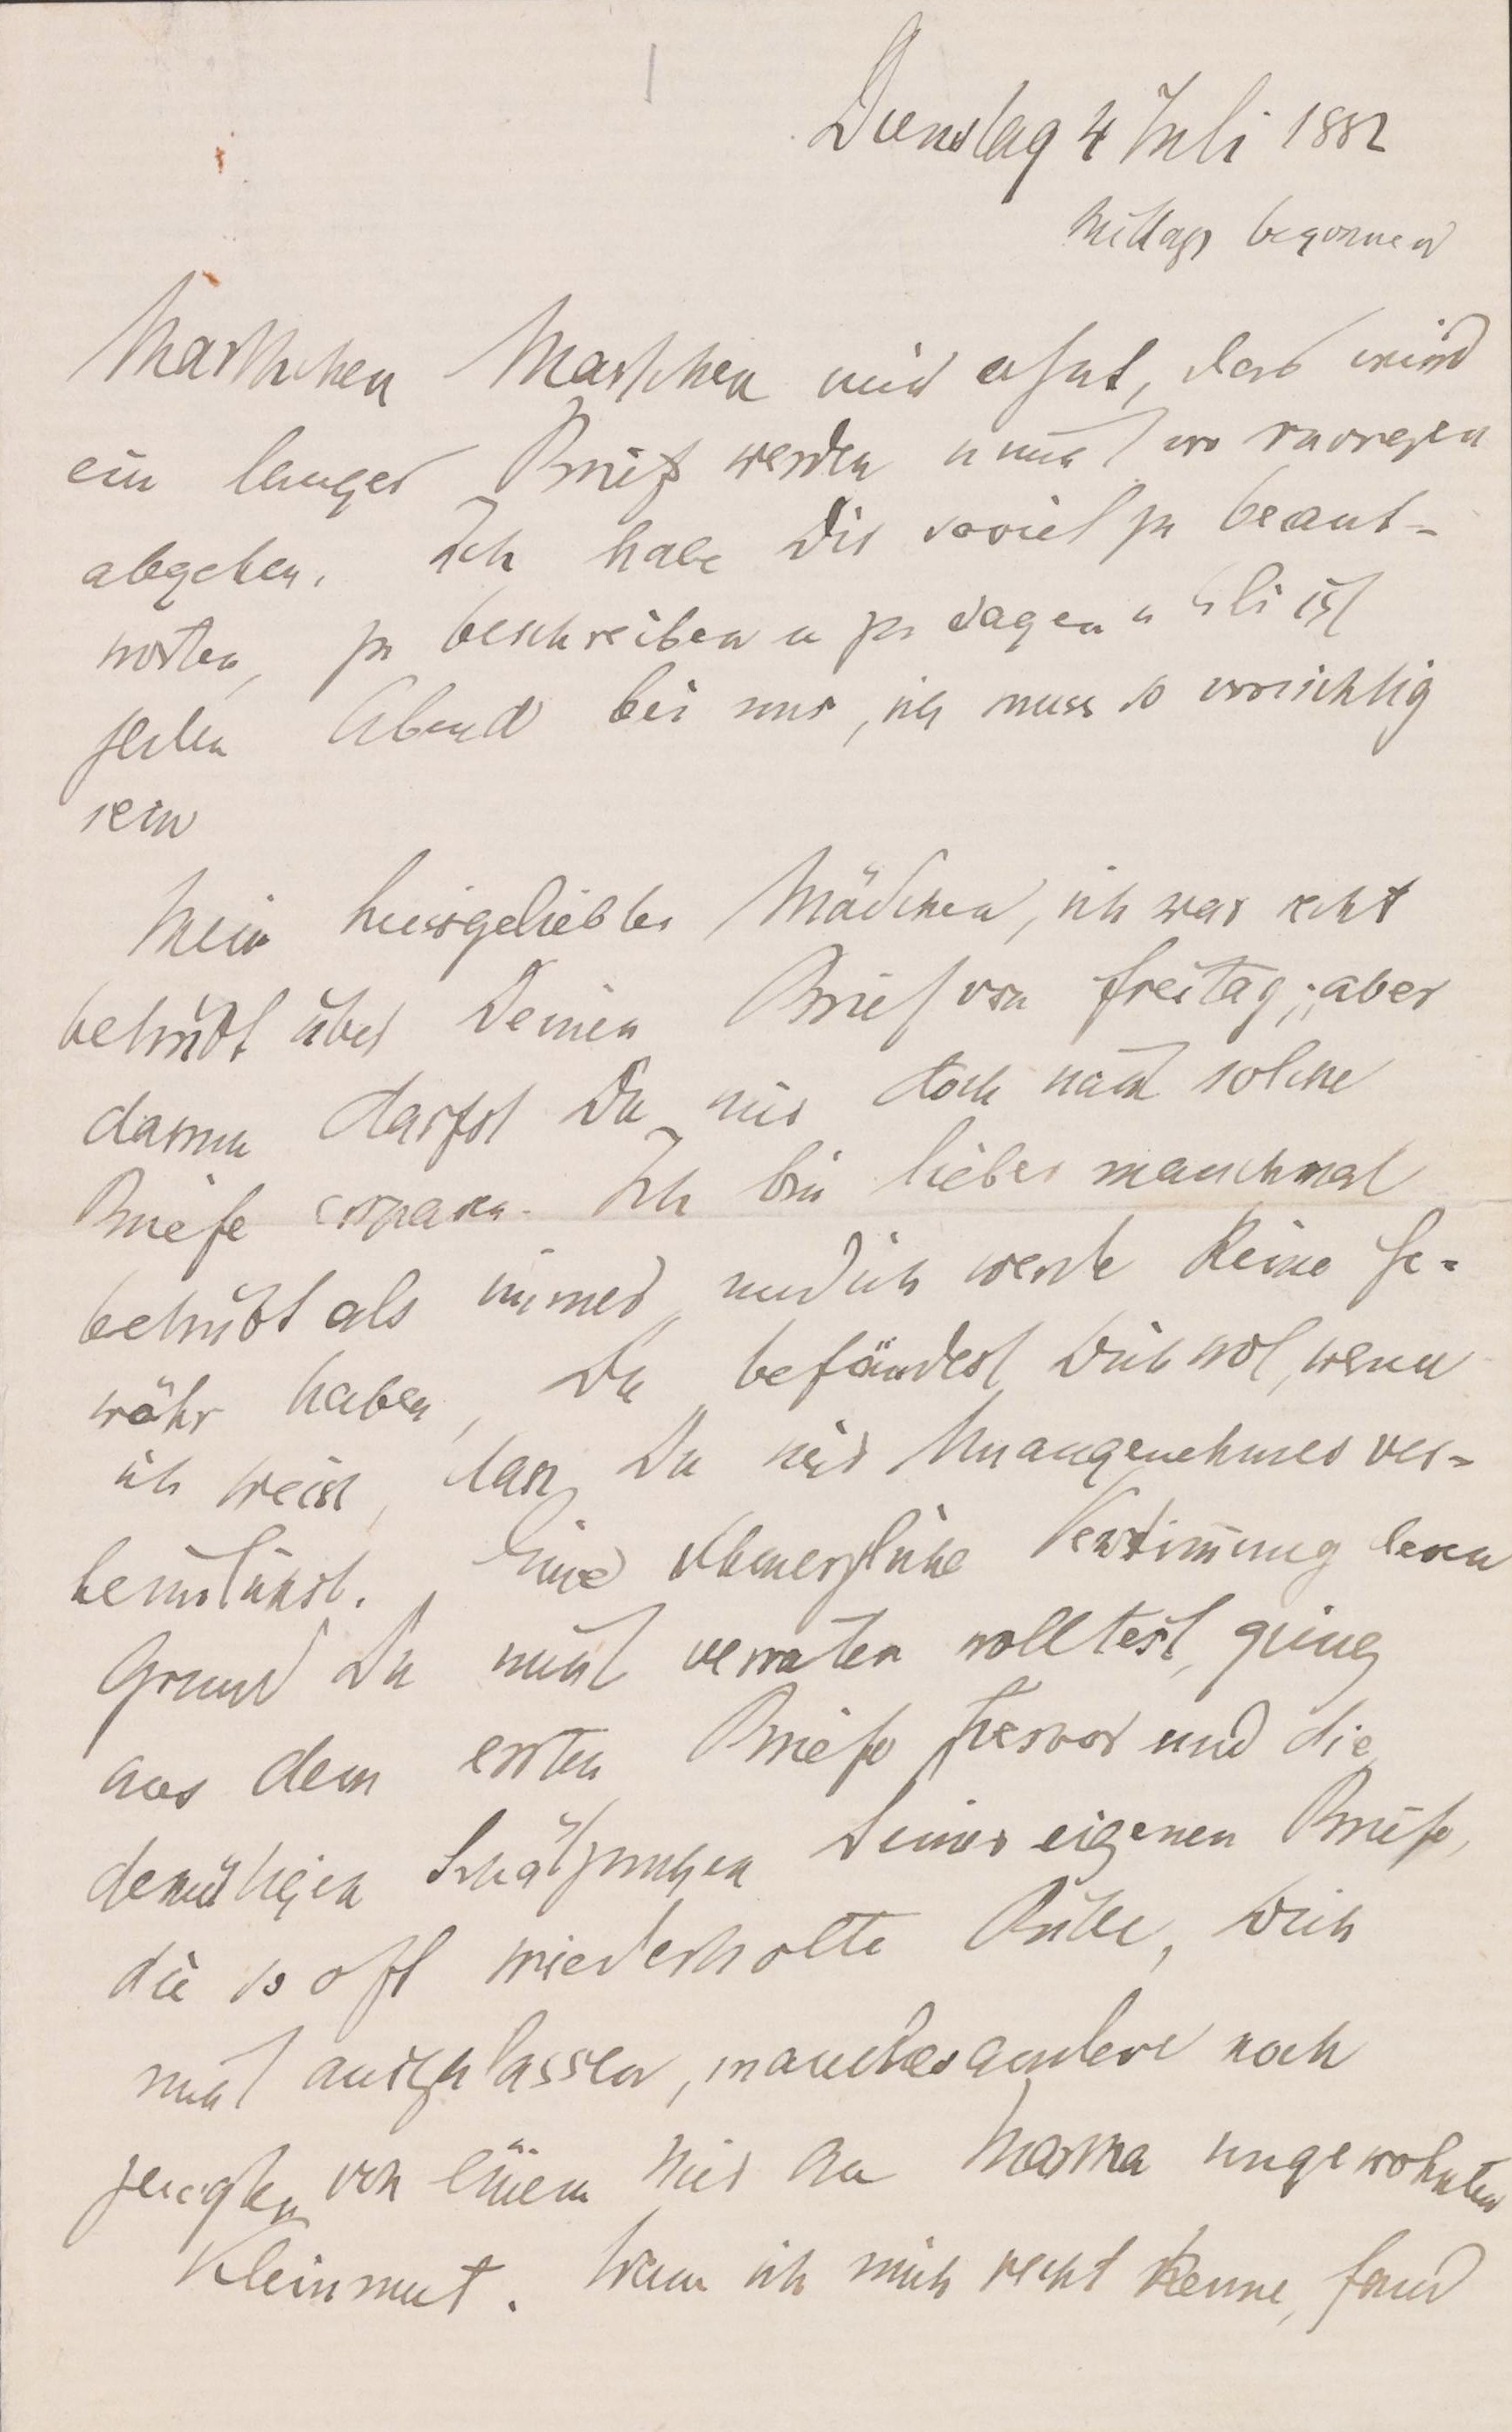 Dienstag 4 Juli 1882
Mittags begonnen
Marthchen Marthchen mir ahnt, das wird
ein langer Brief werden u nicht vor morgen
abgehen. Ich habe Dir soviel zu beant-
worten, zu beschreiben u zu sagen u Eli ist
jeden Abend bei uns, ich muss so vorsichtig
sein
Mein heissgeliebtes Mädchen, ich war recht
betrübt über Deinen Brief von Freitag; aber
darum darfst Du mir doch nicht solche
Briefe ersparen. Ich bin lieber manchmal
betrübt als immer, und ich werde keine Ge-
währ haben, Du befändest Dich wol, wenn
ich weiss, dass Du mir Unangenehmes ver-
heimlichst. Eine schmerzliche Verstimmung deren
Grund Du nicht verraten wolltest, ging
aus dem ersten Briefe hervor und die
demütigen Schätzungen Deiner eigenen Briefe,
die so oft wiederholte Bitte, Dich
nicht auszulassen, manches andere noch
zeugten von einem mir an Martha ungewohnten
Kleinmut. Wenn ich mich recht kenne, fand